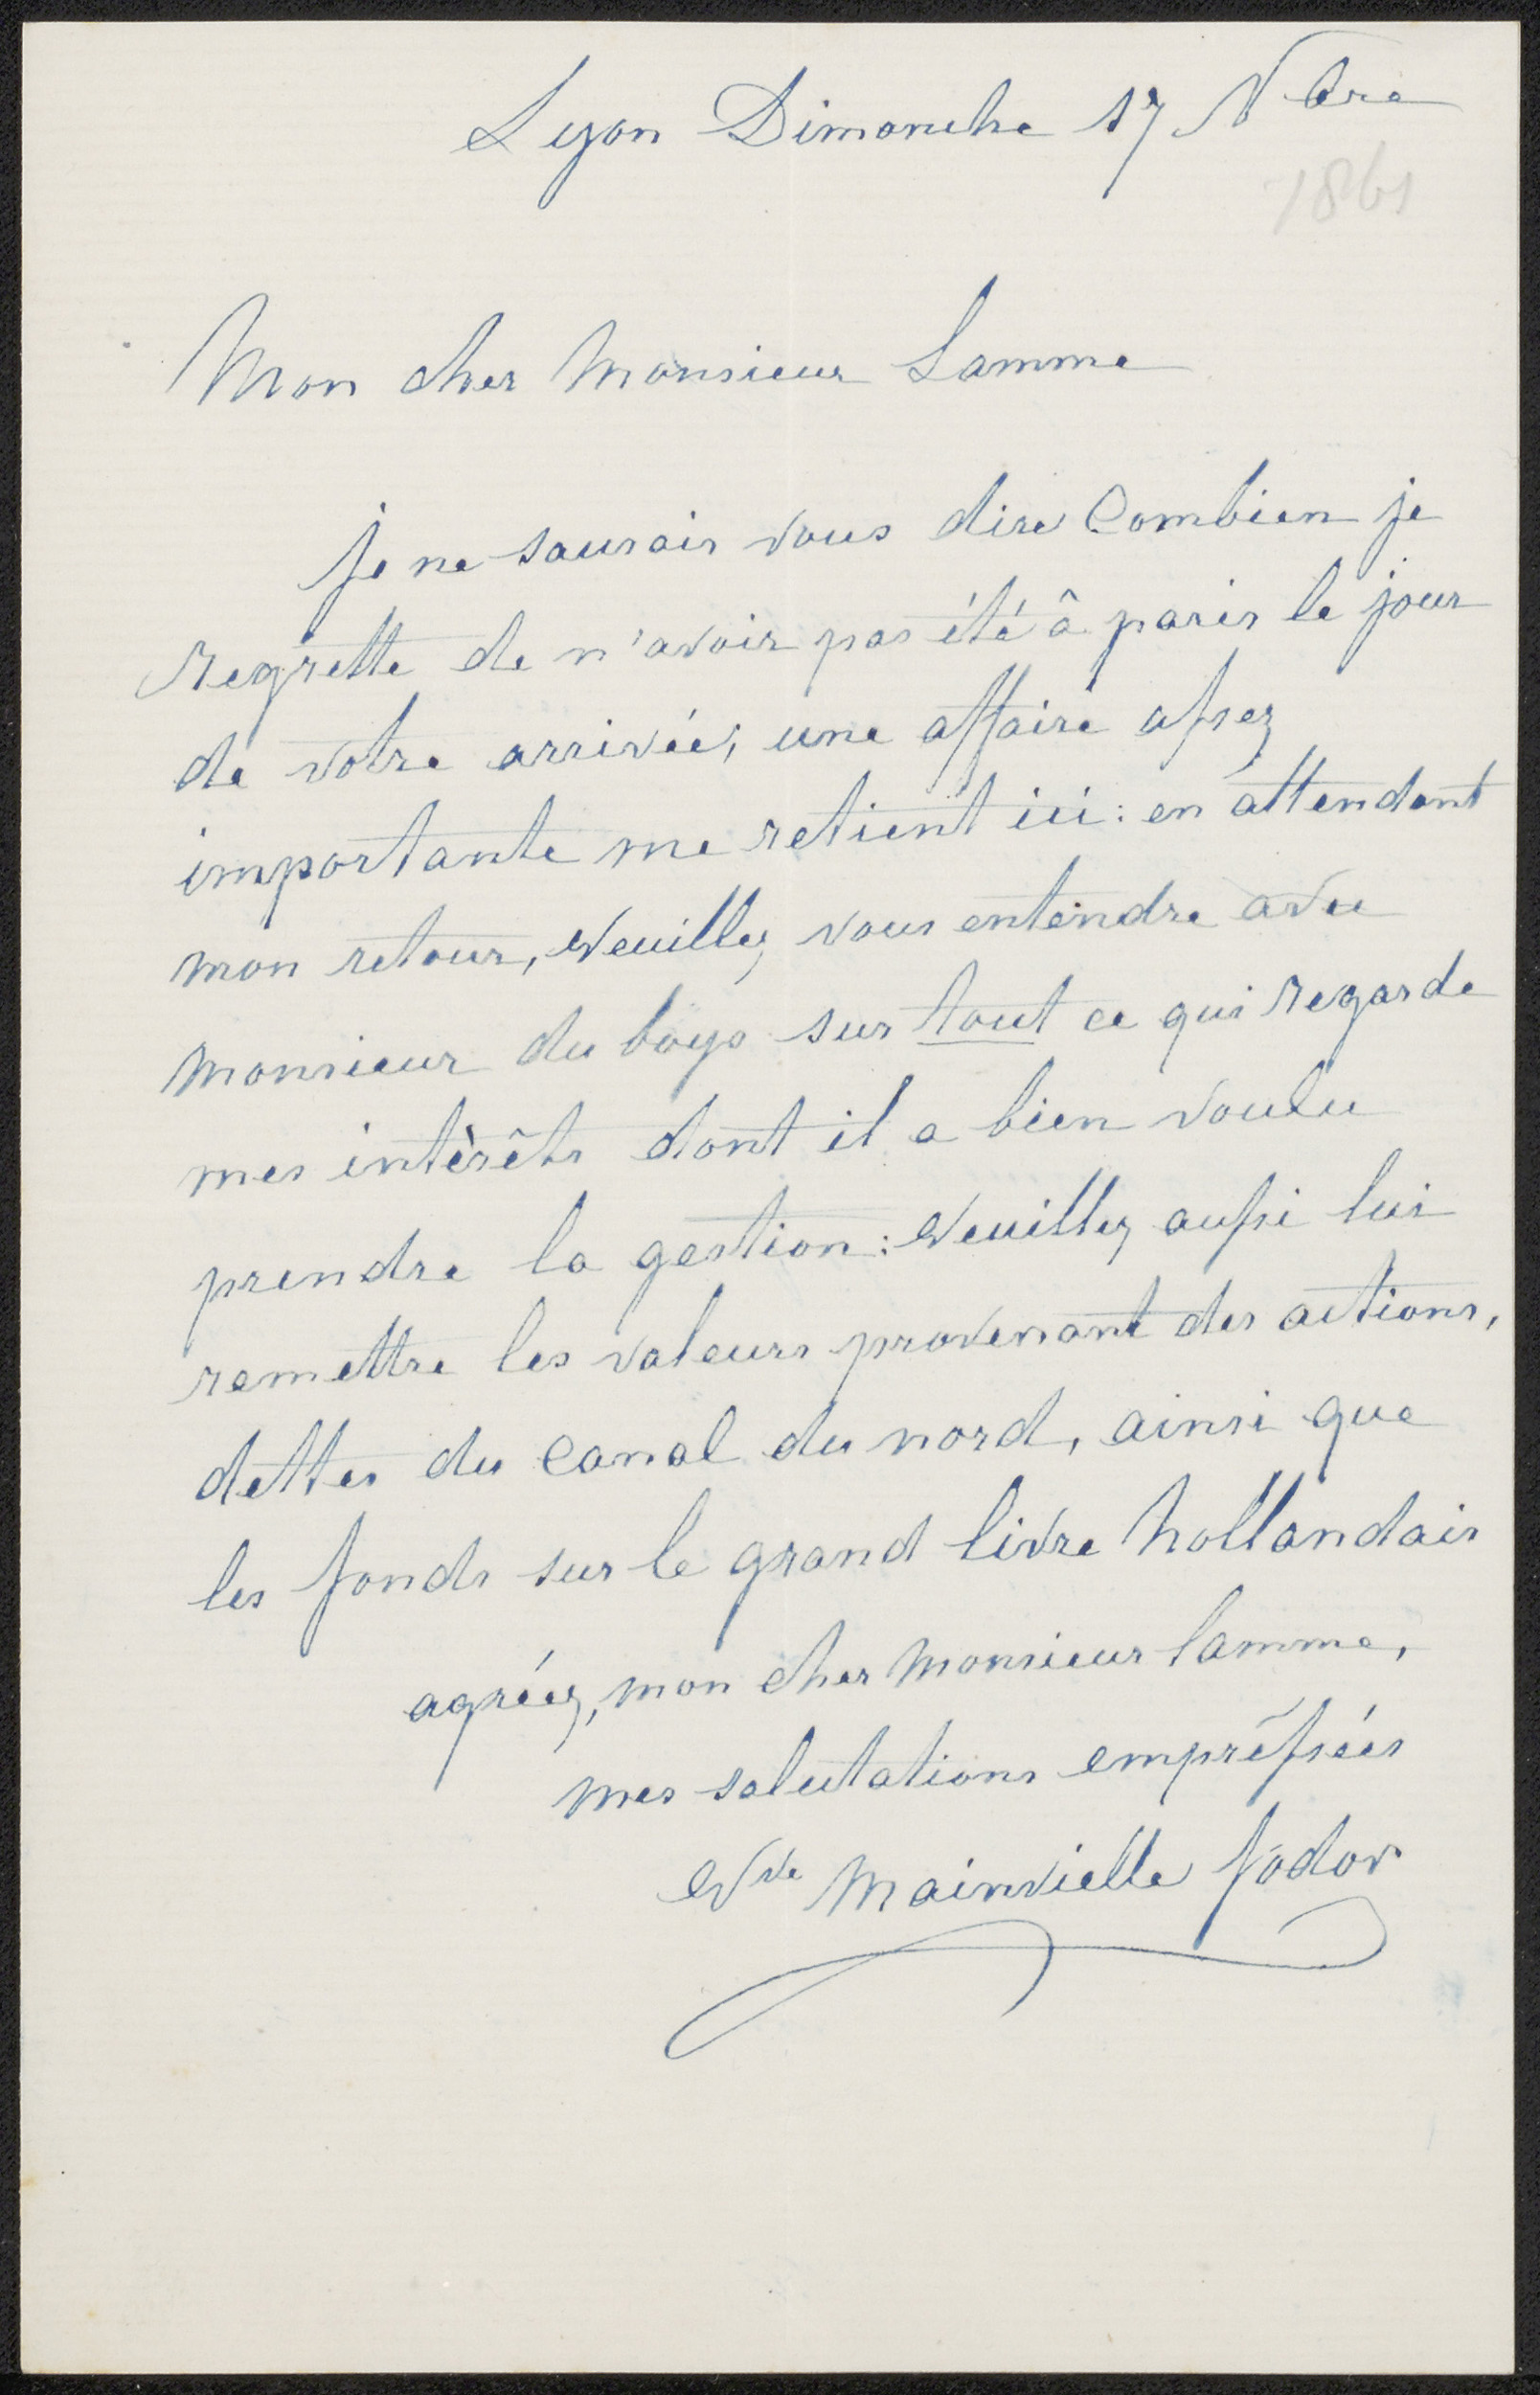 Lyon Dimanche 17 Nbre
1861
Mon cher Monsieur Lamme
je ne saurais vous dire Combien je
regrette de n'avoir pas été â paris le jour
de votre arrivée; une affaire assez
importante me retient ici: en attendant
mon retour, Veuillez vous entendre avec
Monsieur du boys sur tout ce qui regarde
mes intèrêts dont il a bien voulu
prendre la gestion: Veuillez aussi lui
remettre les valeurs provenant des actions,
dettes du Canal du nord, ainsi que
les fonds sur le grand livre hollandais
agréez, mon cher Monsieur Lamme,
mes salutations empréssées
Vve Mainvielle fodor